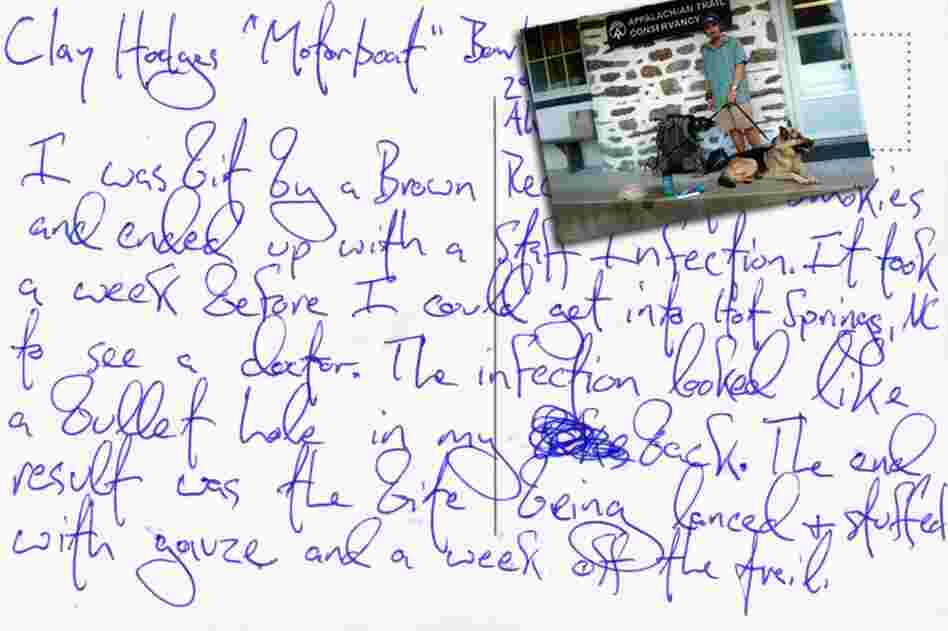 Clay Hodges "Motorboat"
APPALACHIAN TRAIL
CONSERVANCY
I was bit by a Brown
Smokies
and ended up with a Staff Infection. It took
a week before I could get into Hot Springs, NC
to see a doctor. The infection looked like
a bullet hole in my back. The end
result was the bite being lanced + stuffed
with gauze and a week off the trail.